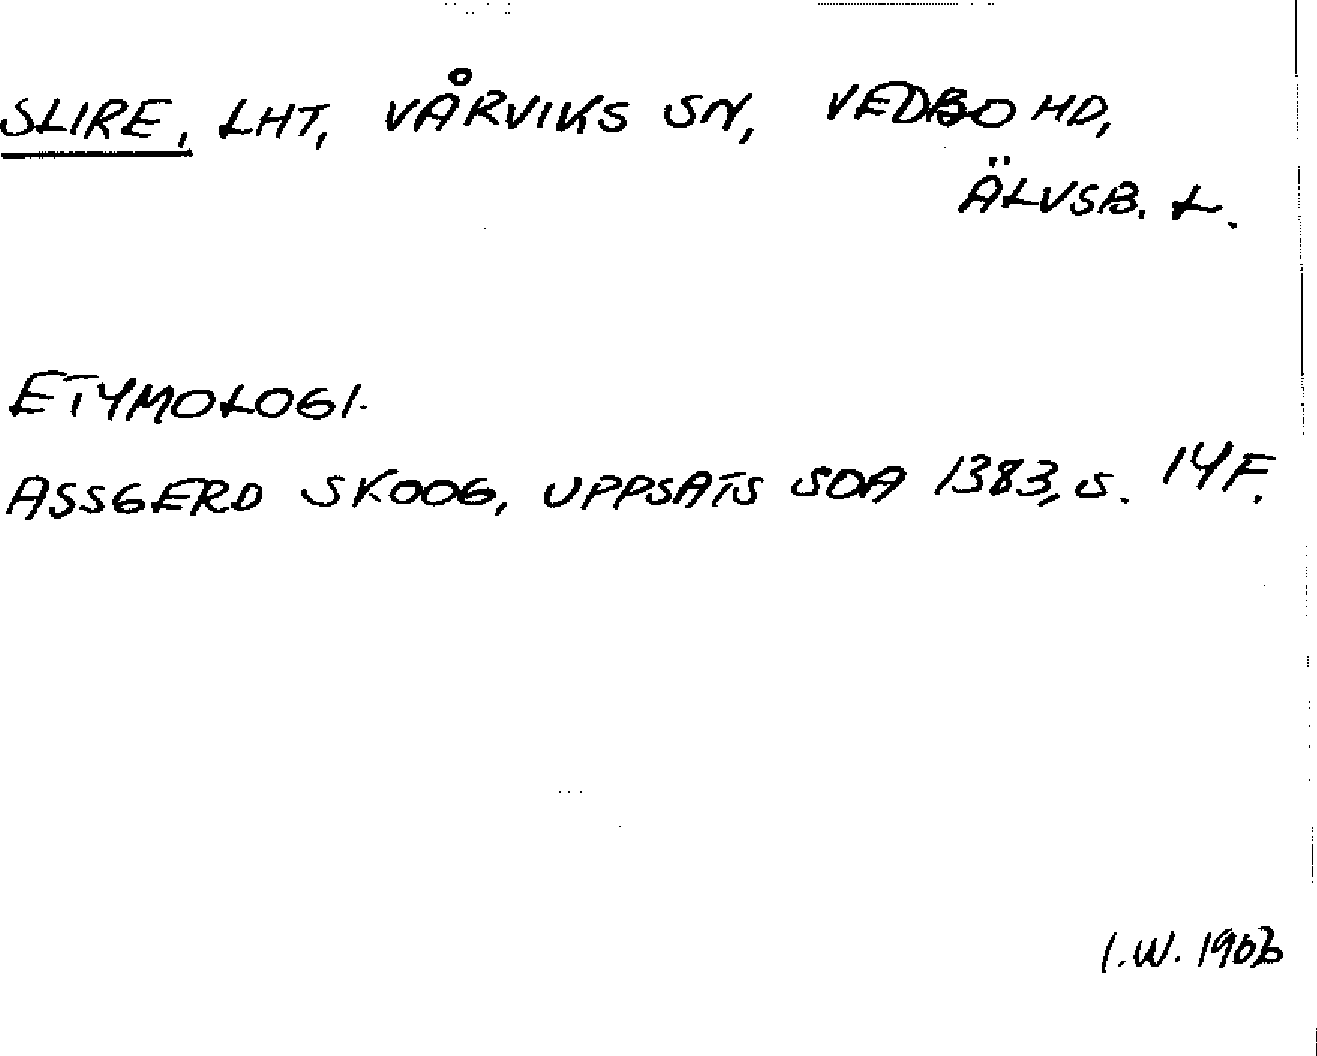 SLIRE, LHT, VÅRVIKS SN, VEDBO HD,
ÄLVSB. L.
ETYMOLOGI.
ASSGERD SKOOG, UPPSATS SOA 1383, S. 14F.
I.W.